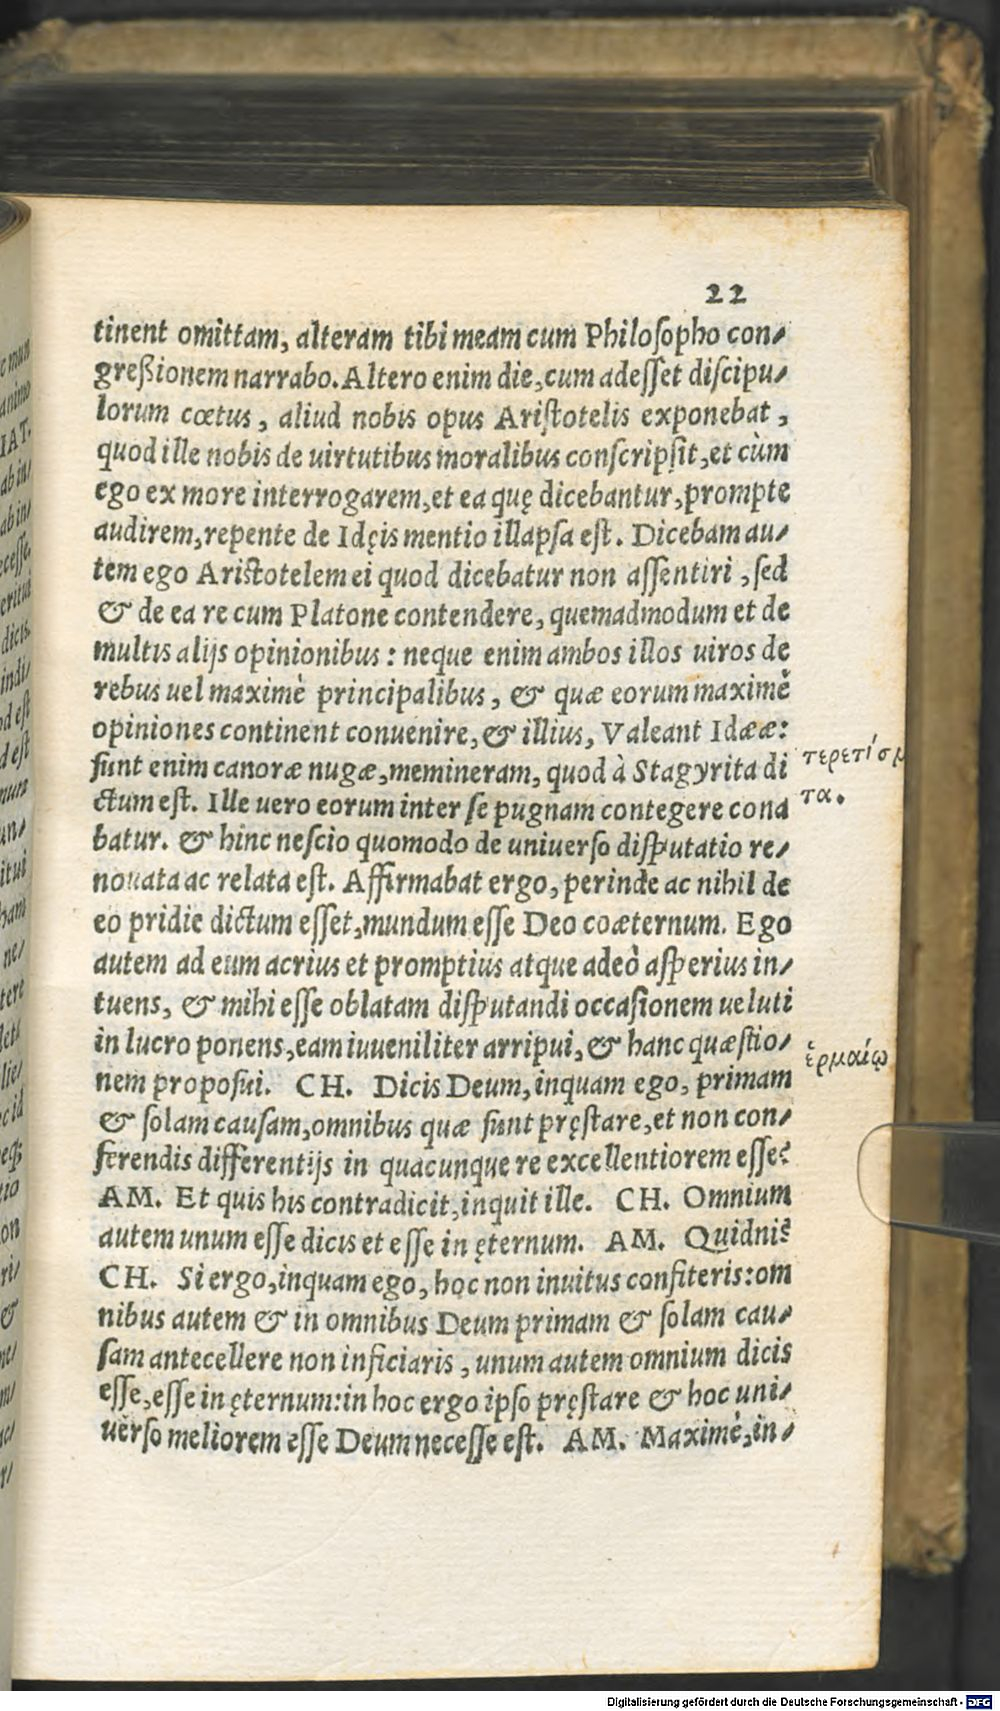 22
tinent omittam, alteram tibi meam cum Philosopho con-
greßionem narrabo. Altero enim die, cum adesset discipu-
lorum cœtus, aliud nobis opus Aristotelis exponebat,
quod ille nobis de uirtutibus moralibus conscripsit, et cùm
ego ex more interrogarem, et ea quę dicebantur, prompte
audirem, repente de Idęis mentio illapsa est. Dicebam au-
tem ego Aristotelem ei quod dicebatur non assentiri, sed
& de ea re cum Platone contendere, quemadmodum et de
multis alijs opinionibus: neque enim ambos illos uiros de
rebus uel maximè principalibus, & quæ eorum maximè
opiniones continent conuenire, & illius, Valeant Idææ:
sunt enim canoræ nugæ, memineram, quod à Stagyrita di
ctum est. Ille uero eorum inter se pugnam contegere cona
batur. & hinc nescio quomodo de uniuerso disputatio re-
nouata ac relata est. Affirmabat ergo, perinde ac nihil de
eo pridie dictum esset, mundum esse Deo coæternum. Ego
autem ad eum acrius et promptius atque adeò asperius in-
tuens, & mihi esse oblatam disputandi occasionem ueluti
in lucro ponens, eam iuueniliter arripui, & hanc quæstio-
nem proposui. CH. Dicis Deum, inquam ego, primam
& solam causam, omnibus quæ sunt pręstare, et non con-
ferendis differentijs in quacunque re excellentiorem esse?
AM. Et quis his contradicit, inquit ille. CH. Omnium
autem unum esse dicis et esse in ęternum. AM. Quidni?
CH. Si ergo, inquam ego, hoc non inuitus confiteris: om
nibus autem & in omnibus Deum primam & solam cau-
sam antecellere non inficiaris, unum autem omnium dicis
esse, esse in ęternum: in hoc ergo ipso pręstare & hoc uni-
uerso meliorem esse Deum necesse est. AM. Maximè, in-
τερετίσμ
τα.
ἑρμαίῳ
Digitalisierung gefördert durch die Deutsche Forschungsgemeinschaft - DFG